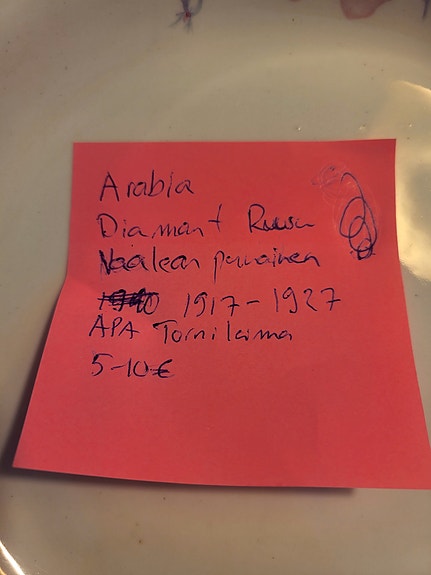 Arabia
Diamant Ruusu
Vaalean punainen
1917-1927
APA Tornileima
5-10€